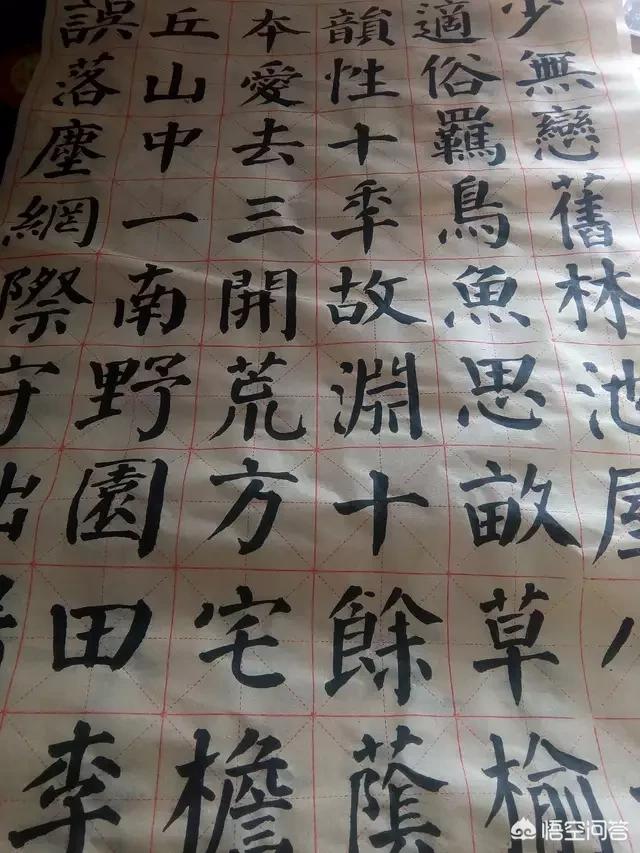 少無戀舊林池屋八
適俗羈鳥魚思畝草榆
韻性十秊故淵十餘蔭
本愛去三開荒方宅檐
丘山中一南野園田李
誤落塵網際守拙
悟空问答